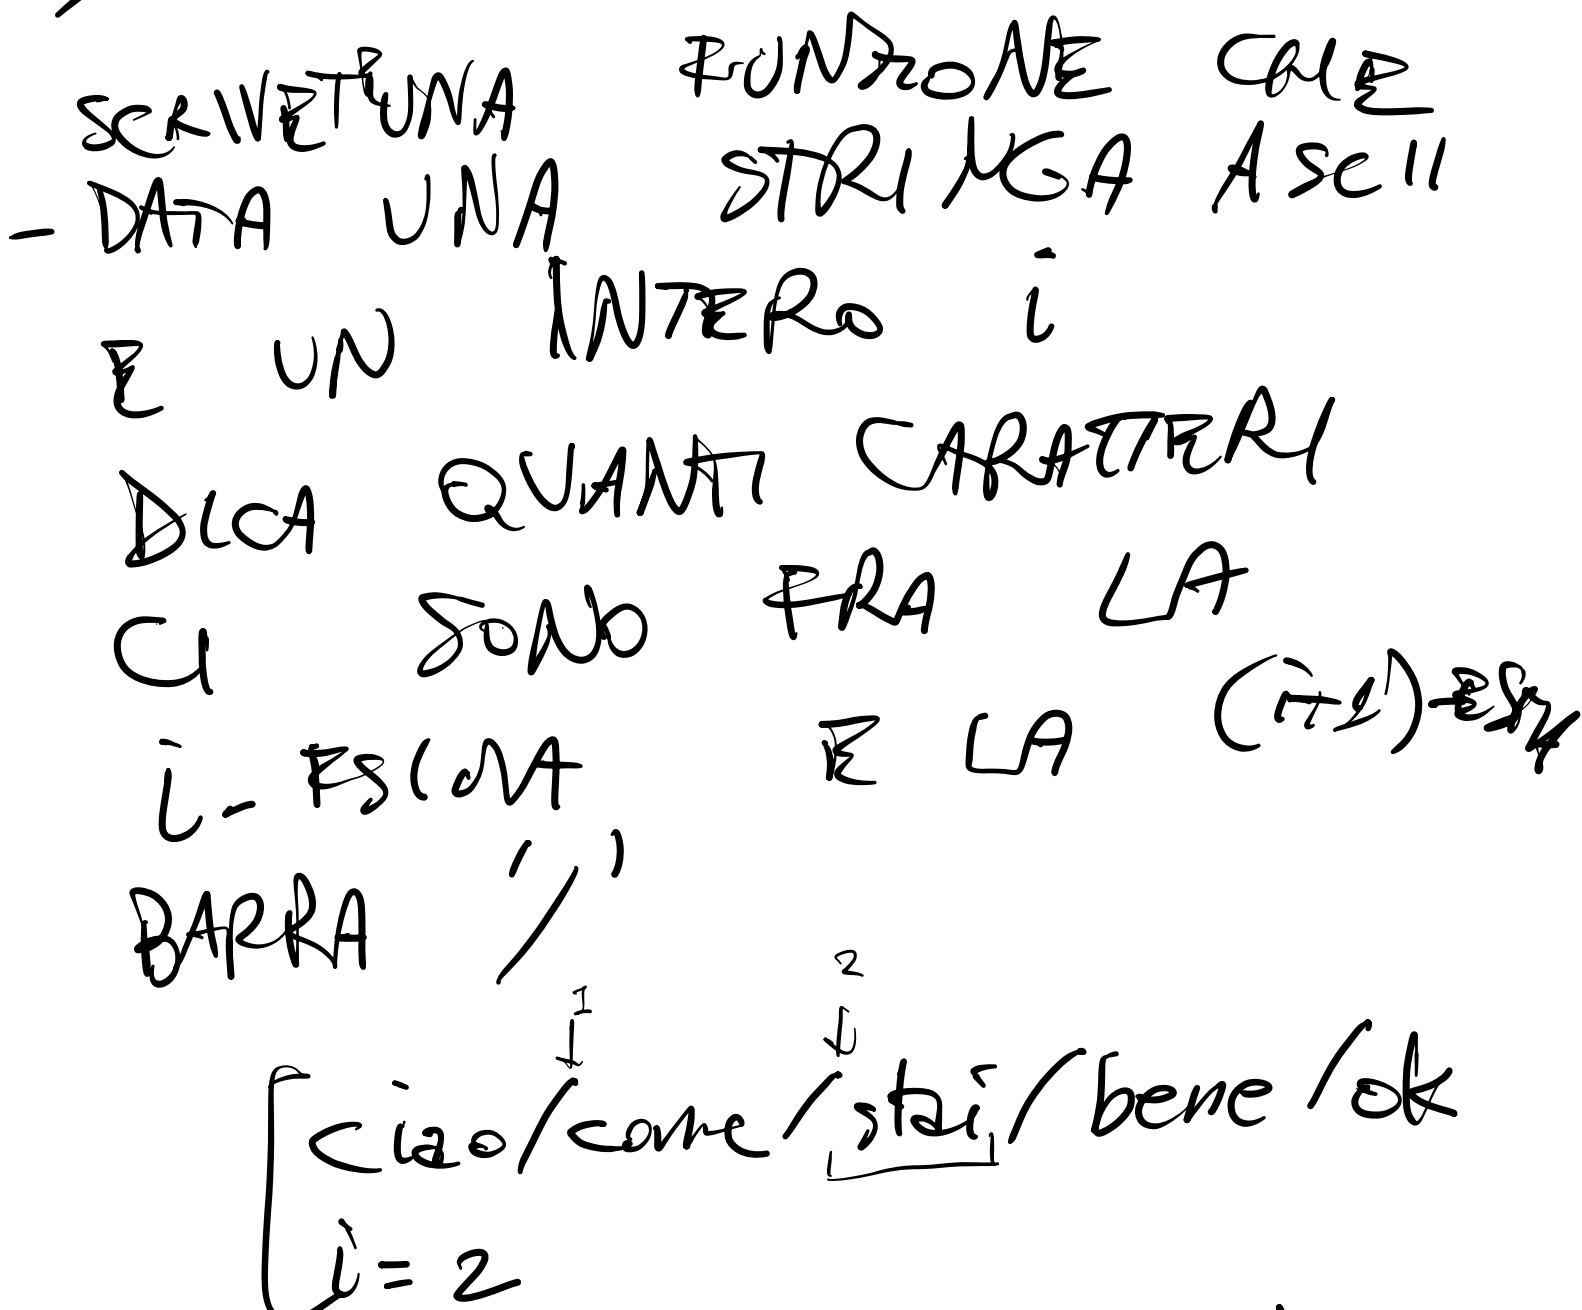 SCRIVETE UNA FUNZIONE CHE
- DATA UNA STRINGA ASCII
E UN INTERO i
DICA QUANTI CARATTERI
CI SONO FRA LA
i-ESIMA E LA (i+1)-ESIMA
BARRA '/'
1 2
ciao/come/stai/bene/ok
i=2